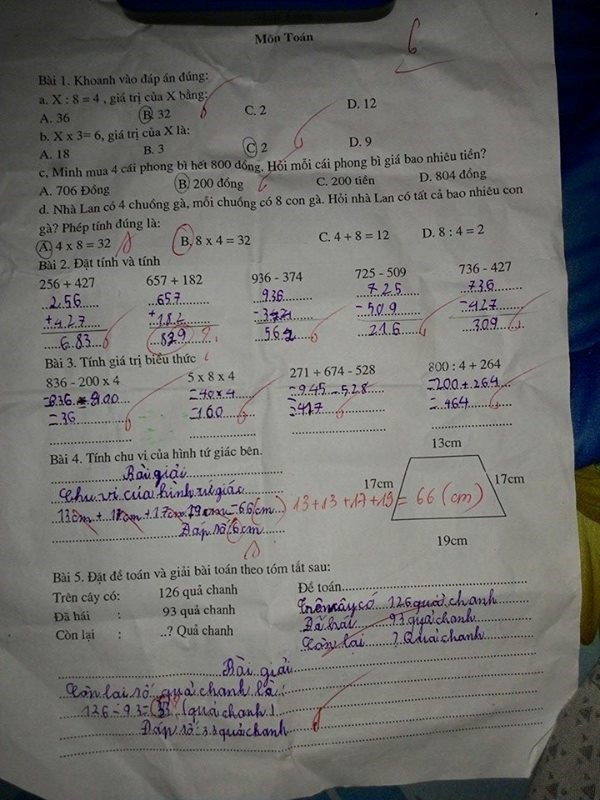 Môn Toán
6
Bài 1. Khoanh vào đáp án đúng:
a. X : 8 = 4 , giá trị của X bằng:
A. 36 B. 32 C. 2 D. 12
b. X x 3= 6, giá trị của X là:
A. 18 B. 3 C. 2 D. 9
c, Minh mua 4 cái phong bì hết 800 đồng. Hỏi mỗi cái phong bì giá bao nhiêu tiền?
A. 706 Đồng B. 200 đồng C. 200 tiền D. 804 đồng
d. Nhà Lan có 4 chuồng gà, mỗi chuồng có 8 con gà. Hỏi nhà Lan có tất cả bao nhiêu con
gà? Phép tính đúng là:
A. 4 x 8 = 32 B. 8 x 4 = 32 C. 4 + 8 = 12 D. 8 : 4 = 2
Bài 2. Đặt tính và tính
256 + 427 657 + 182 936 - 374 725 - 509 736 - 427
256 657 936 725 736
+427 +182 -374 -509 -427
683 829 562 216 309
Bài 3. Tính giá trị biểu thức
836 - 200 x 4 5 x 8 x 4 271 + 674 - 528 800 : 4 + 264
=836 - 800 =40x4 =945-528 =200+264
=36 =160 =417 =464
Bài 4. Tính chu vi của hình tứ giác bên.
13cm
Bài giải
Chu vi của hình tứ giác
17cm 17cm
13+13+17+19= 66 (cm)
19cm
Bài 5. Đặt đề toán và giải bài toán theo tóm tắt sau:
Trên cây có: 126 quả chanh Đề toán
Đã hái : 93 quả chanh
Còn lại : ..? Quả chanh
Trên cây có 126 quả chanh
Đã hái 93 quả chanh
Còn lại ? Quả chanh
Bài giải
Còn lại số quả chanh là:
126-93= 33 (quả chanh)
Đáp số: 33 quả chanh